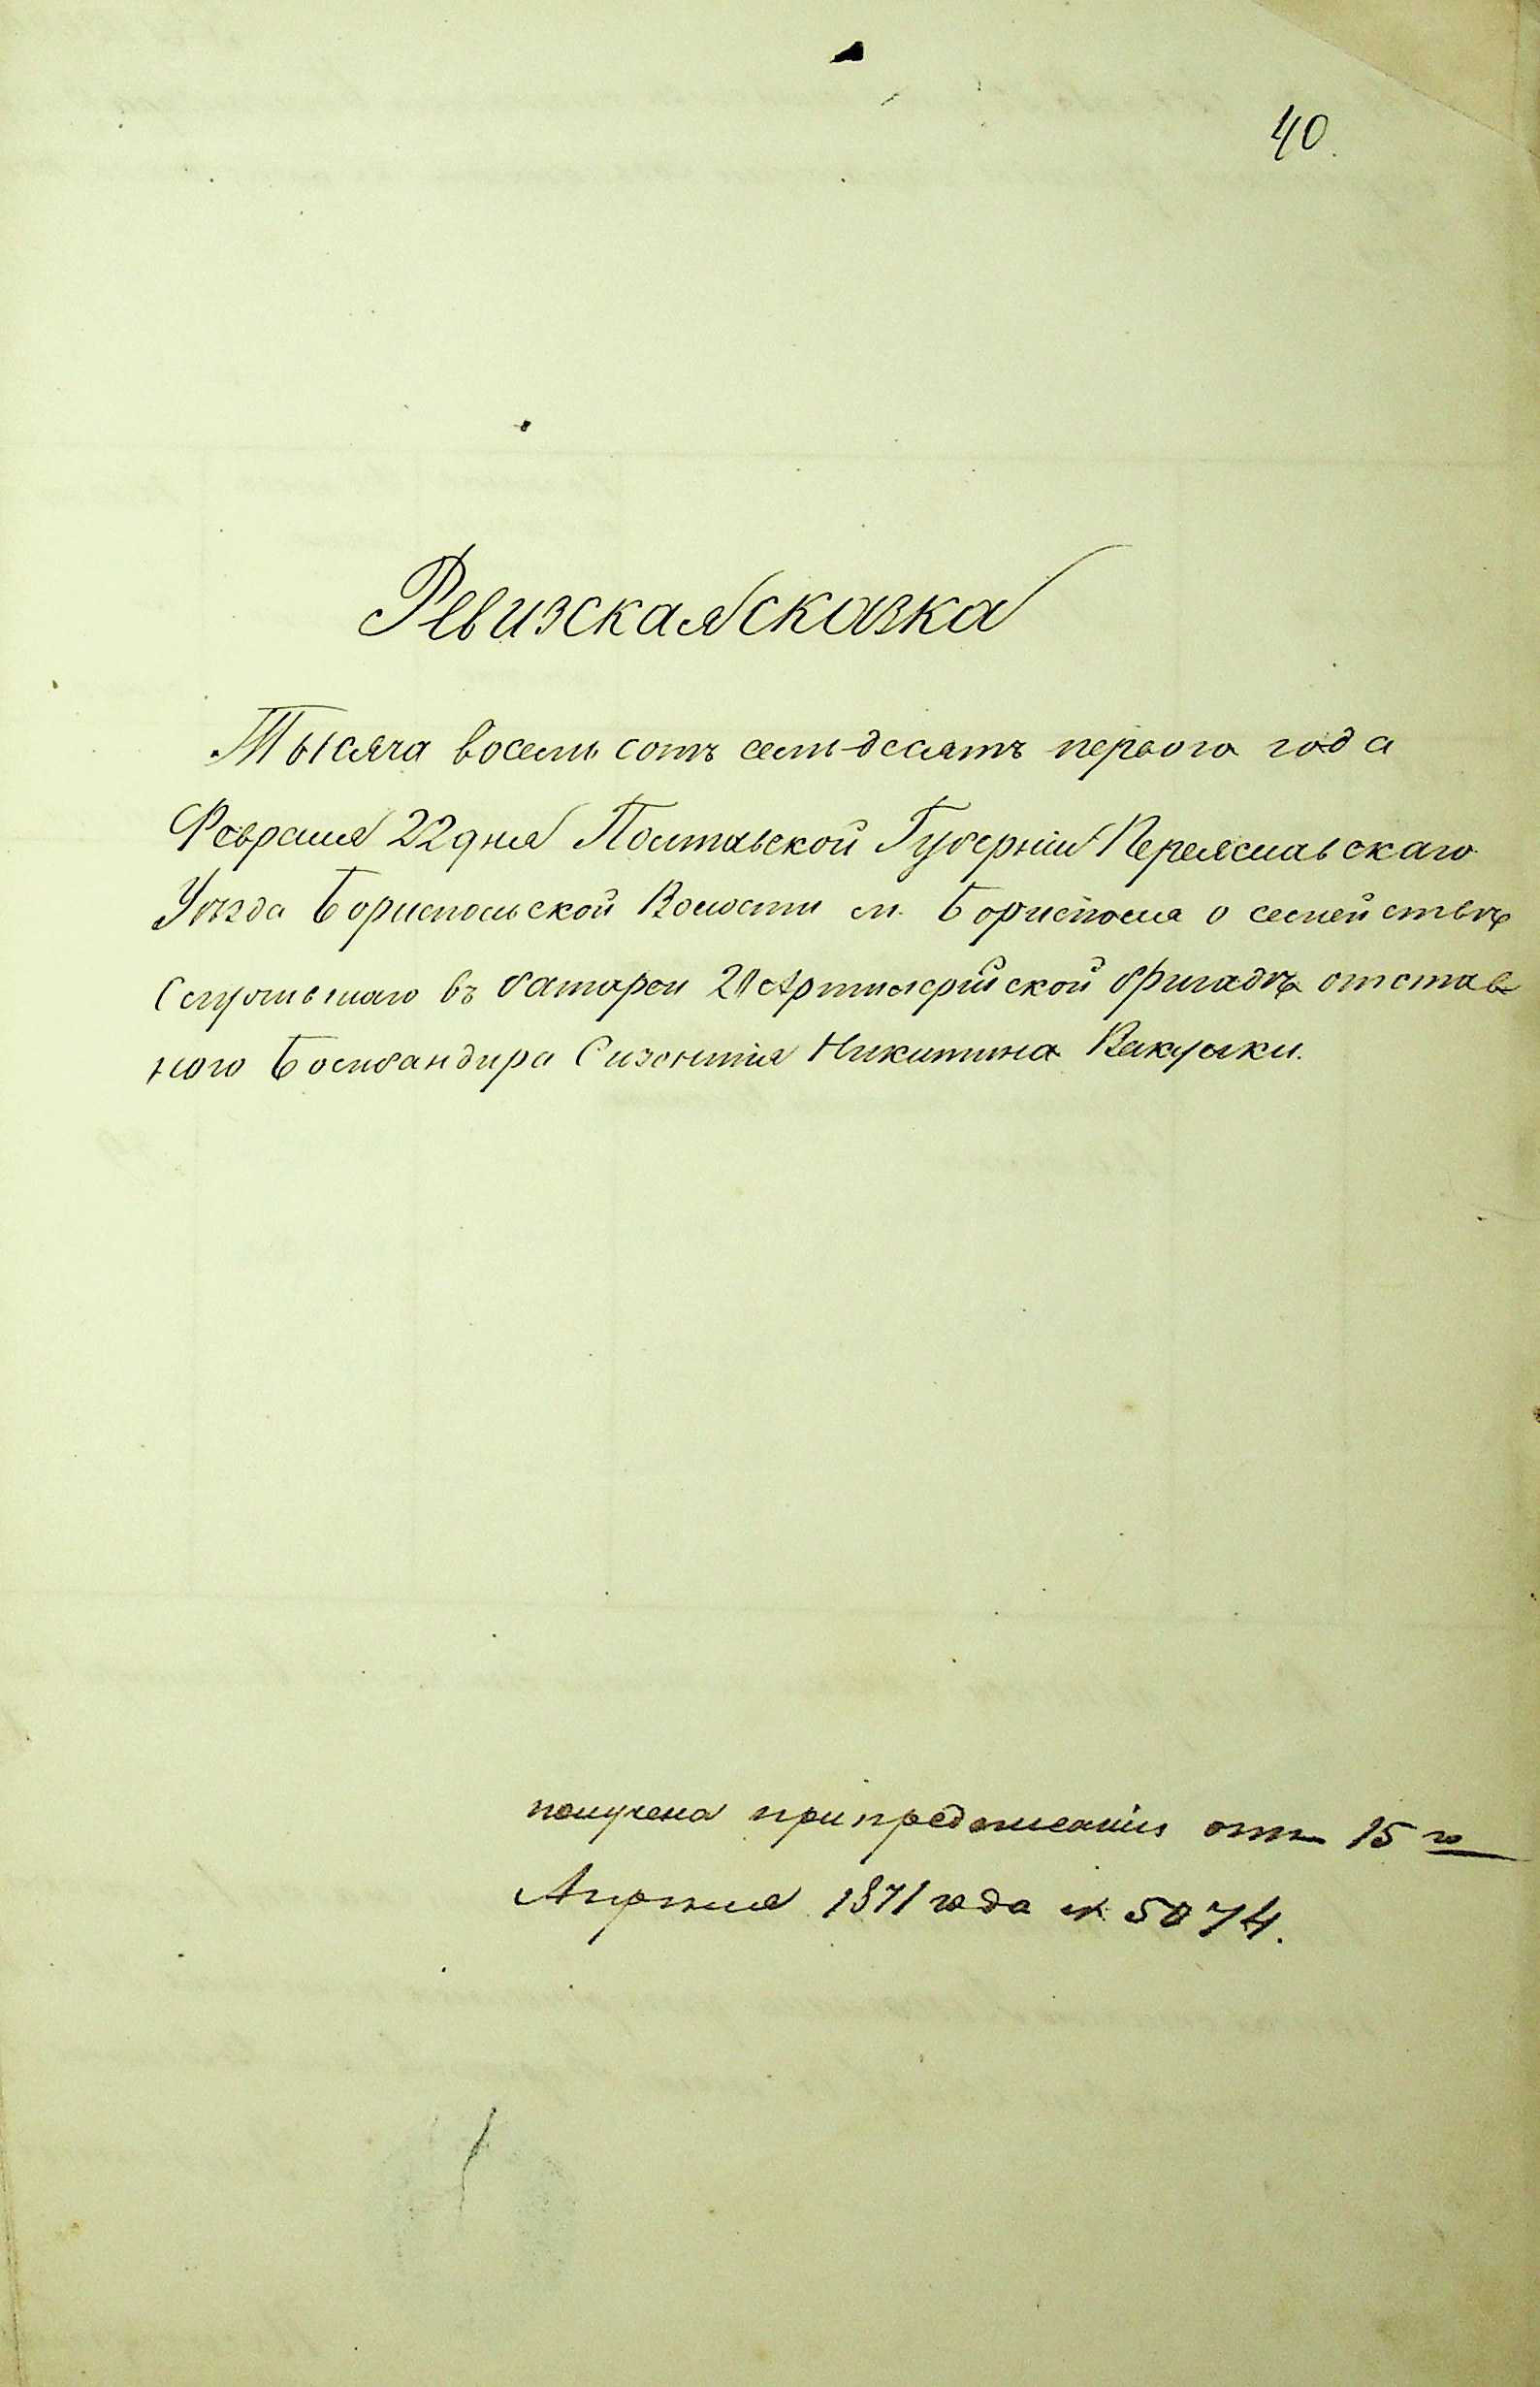 40.
Ревизская сказка
Тысяча восемь сотъ семьдесятъ первого года
Февраля 22 дня Полтавской Губерніи Переяславскаго
Уѣзда Бориспольской Волости м. Борисполя о семействѣ
Служившаго въ батареи 20 Артилерійской бригадѣ отстав
ного Бомбандира Сизонтія Никитина Вакулки.
получена при предписаніи отъ 15 го
Апрѣля 1871 года № 5074.